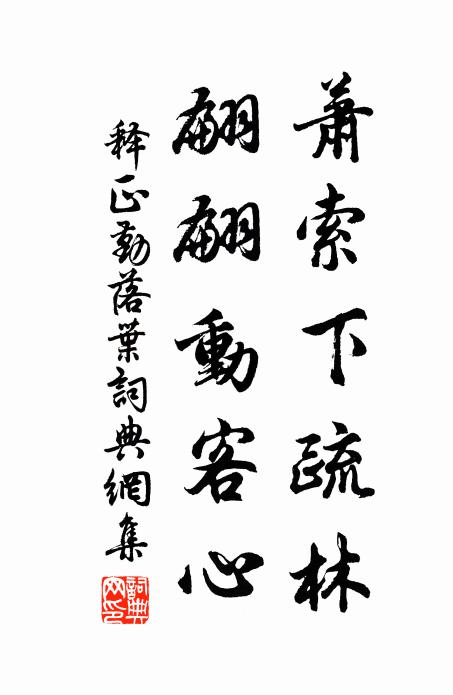 蕭索下疏林
翩翩動客心
释正勤落葉詞典網集
詞典網印